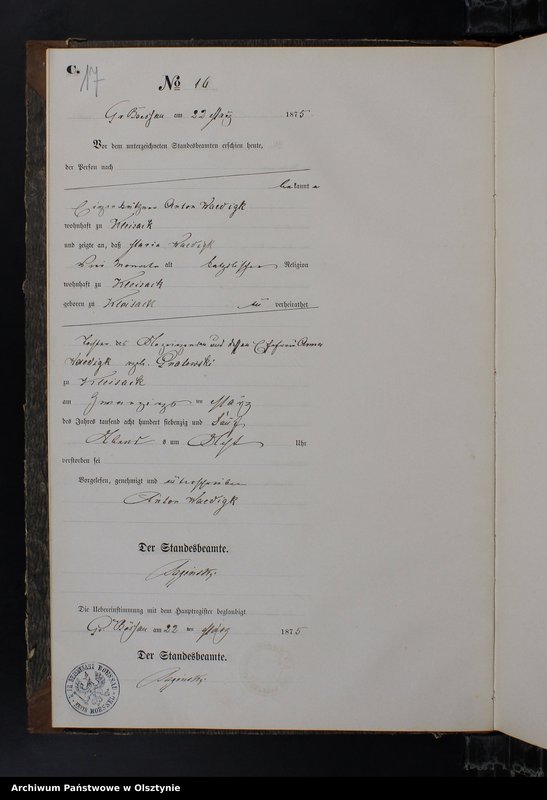 C.
17
No 16
Gr. Bössau am 22 März 1875
Vor dem unterzeichneten Standesbeamten erschien heute,
der Person nach
bekannt
Eigenkäthner Anton Waedigk
wohnhaft zu Kleisack
und zeigte an, daß Maria Waedigk
drei Monate alt katholischer Religion
wohnhaft zu Kleisack
geboren zu Kleisack un verheirathet
Tochter des und dessen Ehefrau Anna
Waedigk geb.
zu Kleisack
am zwanzigsten März
des Jahres tausend acht hundert siebenzig und fünf
Abend s um Acht Uhr
verstorben sei
Vorgelesen, genehmigt und unterschrieben
Anton Waedigk
Der Standesbeamte.
Die Uebereinstimmung mit dem Hauptregister beglaubigt
Gr. Bössau am 22 ten März 1875
Der Standesbeamte.
Archiwum Państwowe w Olsztynie